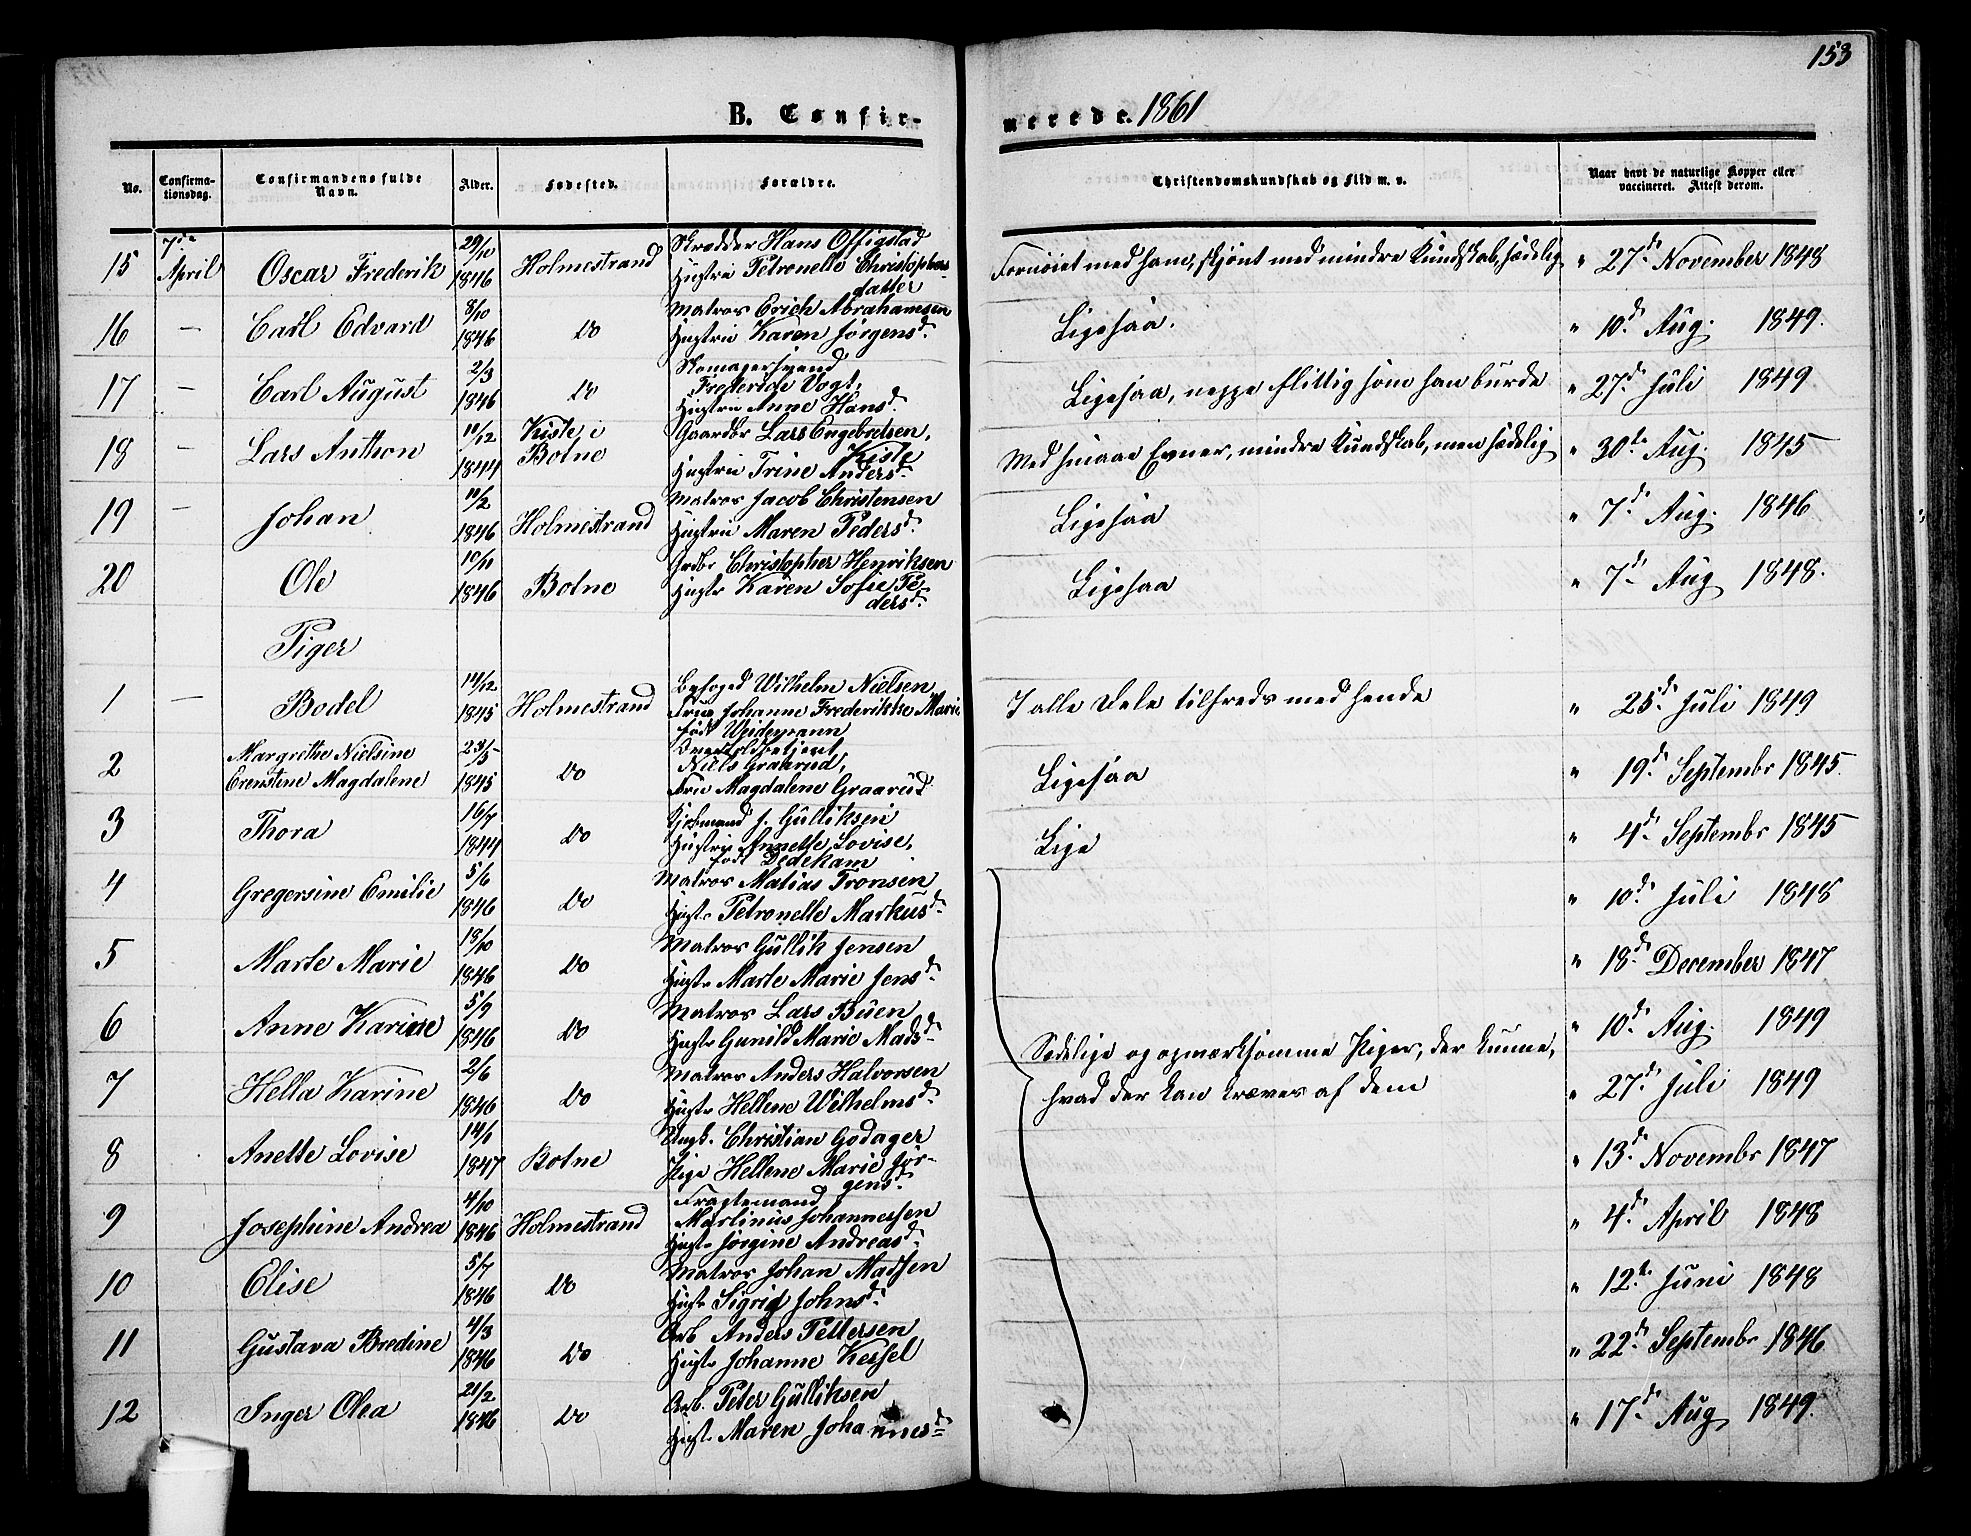 153
B. Confir-
merede. 1861
No.
Confirma-
tionsdag.
Confirmandens fulde
Navn.
Alder.
Fødested.
Forældre.
Christendomskundskab og Flid m. v.
Naar havt de naturlige Kopper eller
vaccineret. Attest derom.
15 7de April Oscar Frederik 29/10 1846 Holmestrand Skrædder Hans Offigstad
Hustru Petronelle Christophers-
datter
Fornøiet med ham, skjønt med mindre Kundskab, sædelig " 27de November 1848
16 — Carl Edvard 8/10 1846 Do Matros Erich Abrahamsen
Hustru Karen Jørgensd.
Ligesaa. " 10d. Aug. 1849.
17 — Carl August 2/3 1846 Do Skomagersvend
Frederich Vogt,
Hustru Anne Hansd.
Ligesaa, neppe flittig som han burde " 27d. Juli 1849
18 — Lars Anthon 11/12 1844 Kiste i Botne Gaardbr Lars Engebretsen,
Kiste
Hustru Trine Andersd.
Med smaae Evner, mindre Kundskab, men sædelig " 30te Aug. 1845
19 — Johan 11/2 1846 Holmestrand Matros Jacob Christensen
Hustru Maren Pedersd.
Ligesaa " 7d. Aug. 1846
20 Ole 10/11 1846 Botne Grdbr Christopher Henriksen
Hustr Karen Sofie Pe-
dersd.
Ligesaa " 7d. Aug 1848.
Piger
1 — Bodel 14/12 1845 Holmestrand Byfoged Wilhelm Nielsen
Frue Johanne Frederikke Marie
født Weidemann
I alle Dele tilfreds med hende " 25d. Juli 1849
2 Margrethe Nielsine
Erenstine Magdalene 23/5 1845 Do Overtoldbetjent
Niels Graarud,
Fru Magdalene Graarud
Ligesaa " 19d. Septembr 1845.
3 Thora 16/7 1844 Do Kjøbmand J. Gulliksen
Hustru Annette Lovise,
født Dedekam
Lige " 4d. Septembr 1845
4 Gregersine Emilie 5/6 1846 Do Matros Matias Tronsen
Hust. Petronelle Markusd.
" 10d. Juli 1848
5 Marte Marie 18/10 1846 Do Matros Gullik Jensen
Hustr Marte Marie Jensd.
" 18d. December 1847
6 Anne Karine 5/9 1846 Do Matros Lars Buen
Hustr Gunild Marie Madsd.
" 10d. Aug. 1849
Sædelige og opmærksomme Piger, der kunne,
hvad der kan kræves af dem
7 Hella Karine 2/6 1846 Do Matros Anders Halvorsen
Hustr Hellene Wilhelmsd.
" 27d. Juli 1849
8 Anette Lovise 14/1 1847 Botne Ungk. Christian Godager
Pige Hellene Marie Jør-
gensd.
" 13d. Novembr 1847
9 Josephine Andrea 4/10 1846 Holmestrand Fragtemand
Martinus Johannessen
Hust. Jørgine Andreasd.
" 4d. April 1848
10 Elise 5/7 1846 Do Matros Johan Madsen
Hust. Sigrid Johnsd.
" 12te Juni 1848
11 Gustava Bredine 4/3 1846 Do Arb Anders Pettersen
Hust. Johanne Kessel
" 22d. Septembr 1846
12 Inger Olea 21/2 1846 Do Arb. Peter Gulliksen
Hust. Maren Johannesd.
" 17d. Aug 1849.